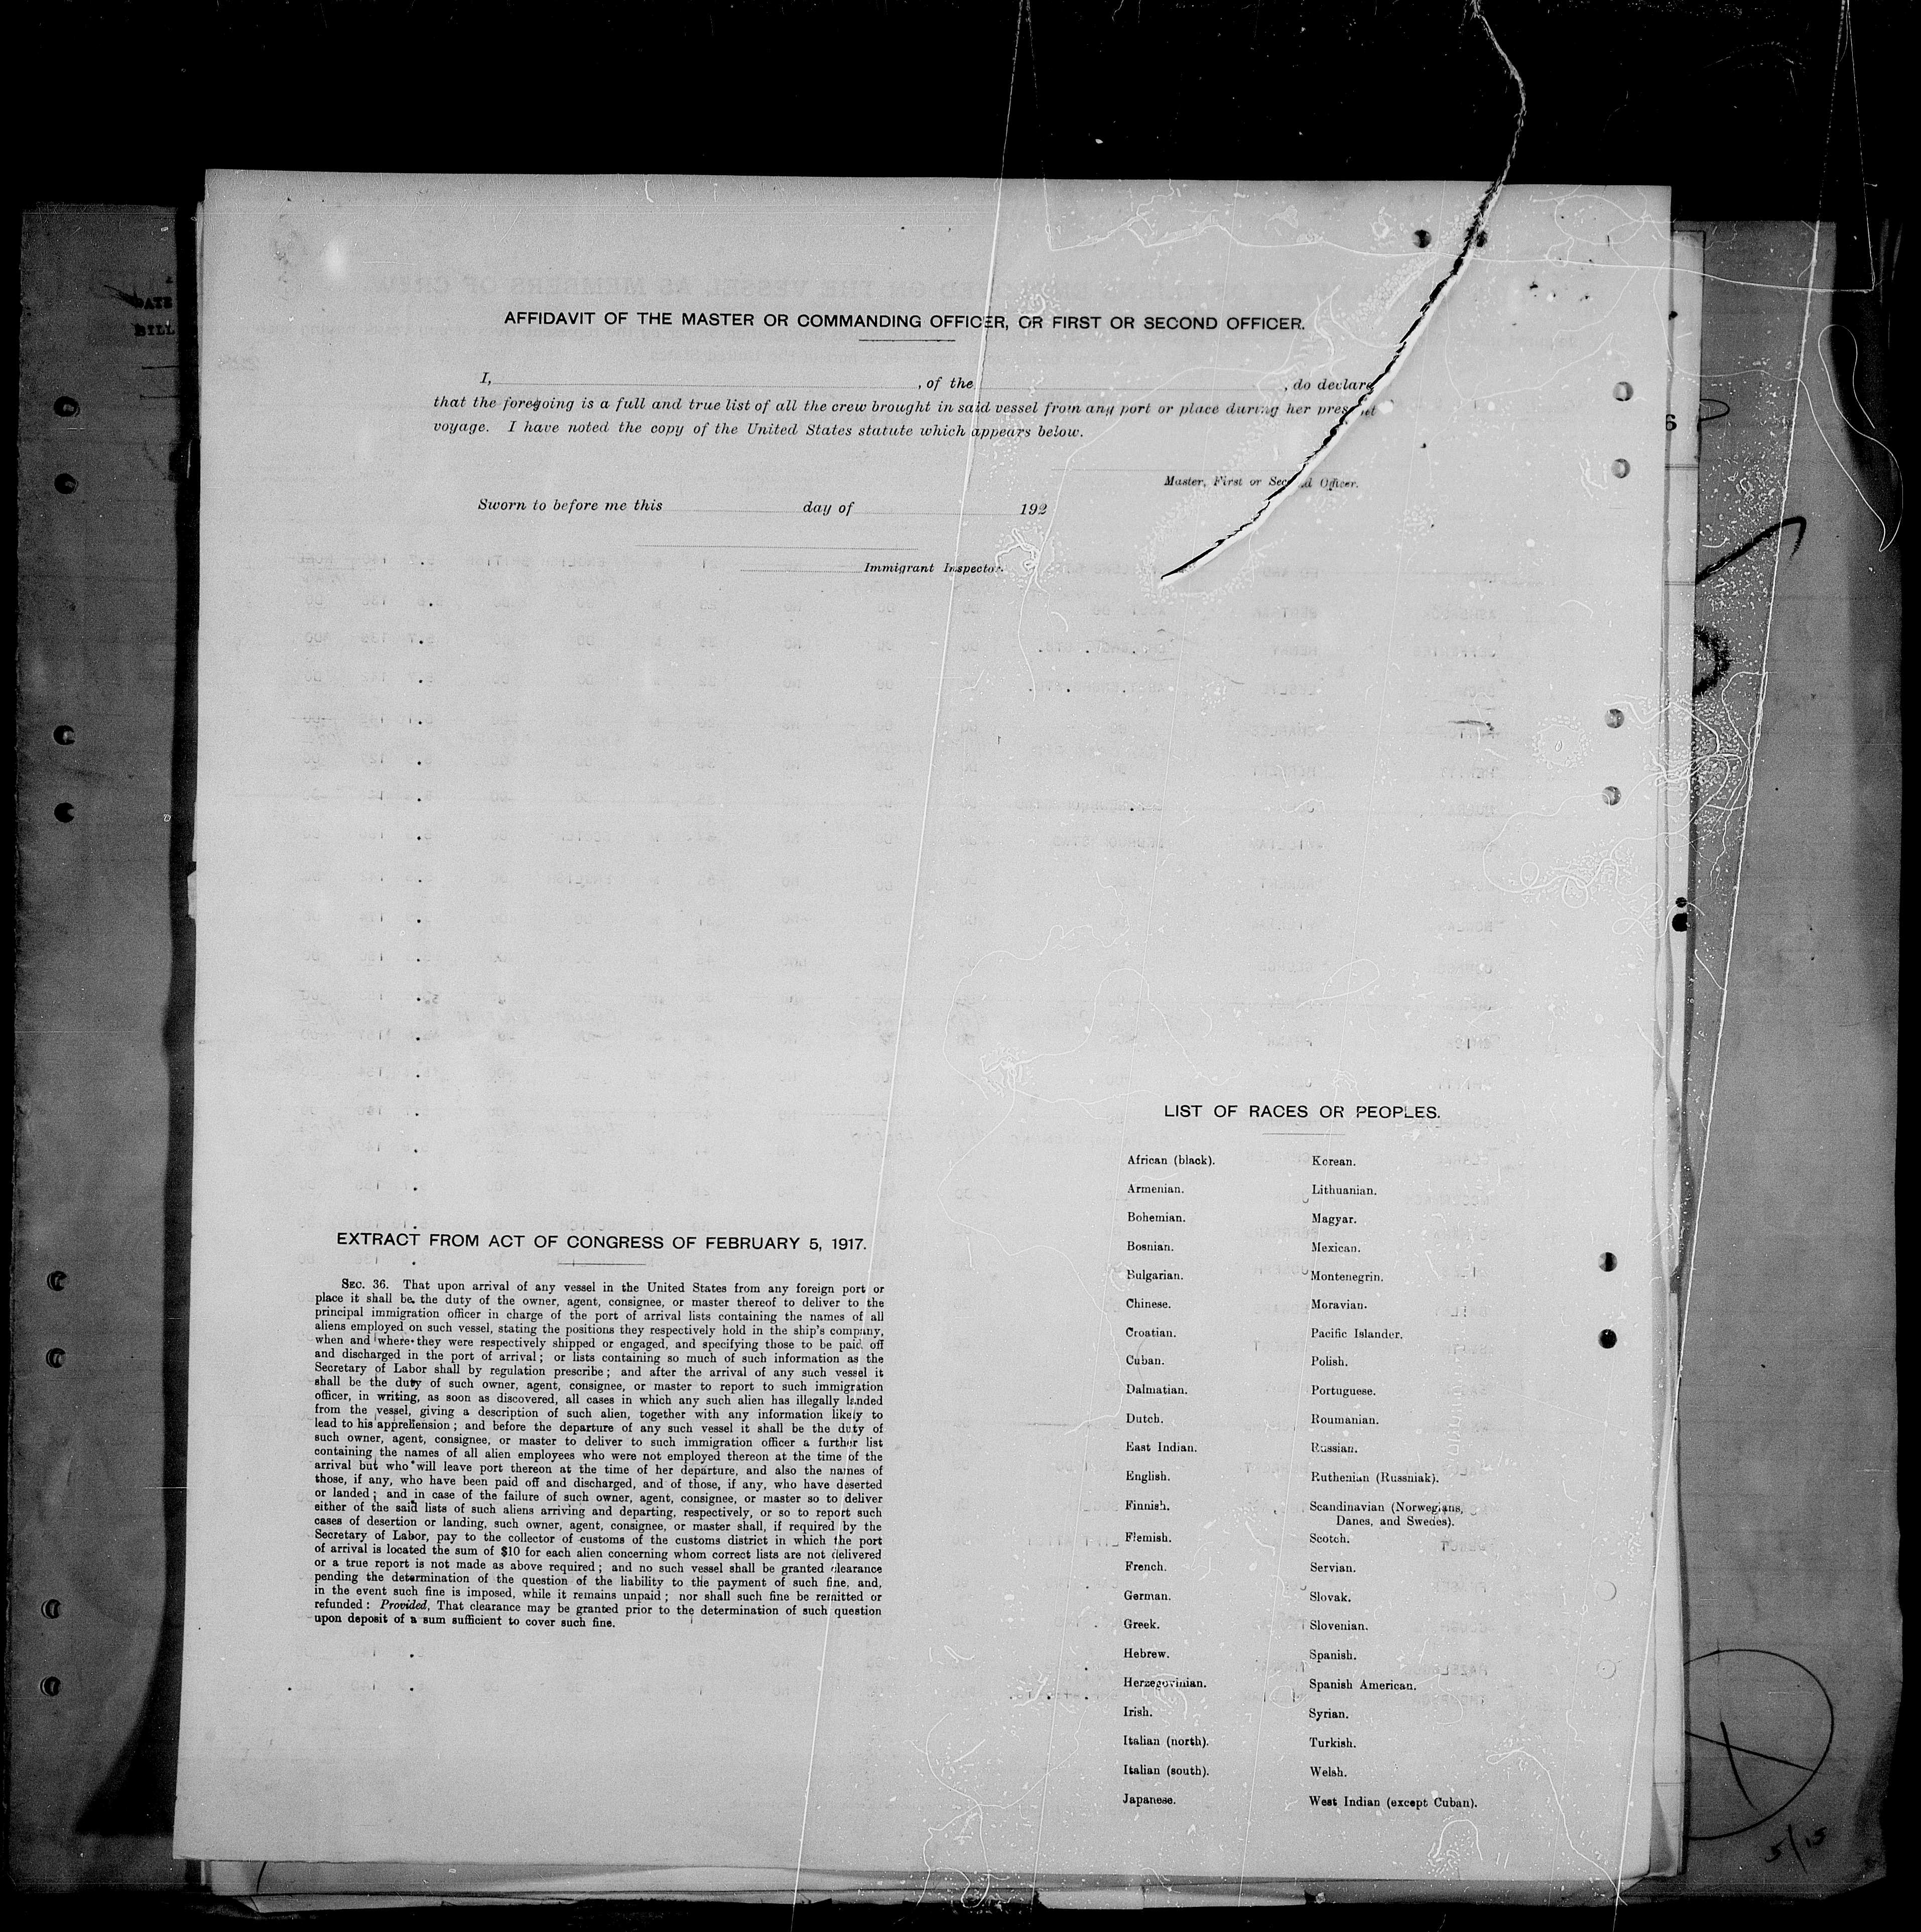 DATE
BILL
AFFIDAVIT OF THE MASTER OR COMMANDING OFFICER, OR FIRST OR SECOND OFFICER.
I, , of the , do declare
that the foregoing is a full and true list of all the crew brought in said vessel from any port or place during her present
voyage. I have noted the copy of the United States statute which appears below.
Master, First or Second Officer.
Sworn to before me this day of 192
Immigrant Inspector.
6
LIST OF RACES OR PEOPLES.
African (black). Korean.
Armenian. Lithuanian.
Bohemian. Magyar.
Bosnian. Mexican.
Bulgarian. Montenegrin.
Chinese. Moravian.
Croatian. Pacific Islander.
Cuban. Polish.
Dalmatian. Portuguese.
Dutch. Roumanian.
East Indian. Russian.
English. Ruthenian (Russniak).
Finnish. Scandinavian (Norwegians,
Danes, and Swedes).
Flemish. Scotch.
French. Servian.
German. Slovak.
Greek. Slovenian.
Hebrew. Spanish.
Herzegovinian. Spanish American.
Irish. Syrian.
Italian (north). Turkish.
Italian (south). Welsh.
Japanese. West Indian (except Cuban).
EXTRACT FROM ACT OF CONGRESS OF FEBRUARY 5, 1917.
SEC. 36. That upon arrival of any vessel in the United States from any foreign port or
place it shall be the duty of the owner, agent, consignee, or master thereof to deliver to the
principal immigration officer in charge of the port of arrival lists containing the names of all
aliens employed on such vessel, stating the positions they respectively hold in the ship's company,
when and where they were respectively shipped or engaged, and specifying those to be paid off
and discharged in the port of arrival; or lists containing so much of such information as the
Secretary of Labor shall by regulation prescribe; and after the arrival of any such vessel it
shall be the duty of such owner, agent, consignee, or master to report to such immigration
officer, in writing, as soon as discovered, all cases in which any such alien has illegally landed
from the vessel, giving a description of such alien, together with any information likely to
lead to his apprehension; and before the departure of any such vessel it shall be the duty of
such owner, agent, consignee, or master to deliver to such immigration officer a further list
containing the names of all alien employees who were not employed thereon at the time of the
arrival but who will leave port thereon at the time of her departure, and also the names of
those, if any, who have been paid off and discharged, and of those, if any, who have deserted
or landed; and in case of the failure of such owner, agent, consignee, or master so to deliver
either of the said lists of such aliens arriving and departing, respectively, or so to report such
cases of desertion or landing, such owner, agent, consignee, or master shall, if required by the
Secretary of Labor, pay to the collector of customs of the customs district in which the port
of arrival is located the sum of $10 for each alien concerning whom correct lists are not delivered
or a true report is not made as above required; and no such vessel shall be granted clearance
pending the determination of the question of the liability to the payment of such fine, and,
in the event such fine is imposed, while it remains unpaid; nor shall such fine be remitted or
refunded: Provided, That clearance may be granted prior to the determination of such question
upon deposit of a sum sufficient to cover such fine.
5/15